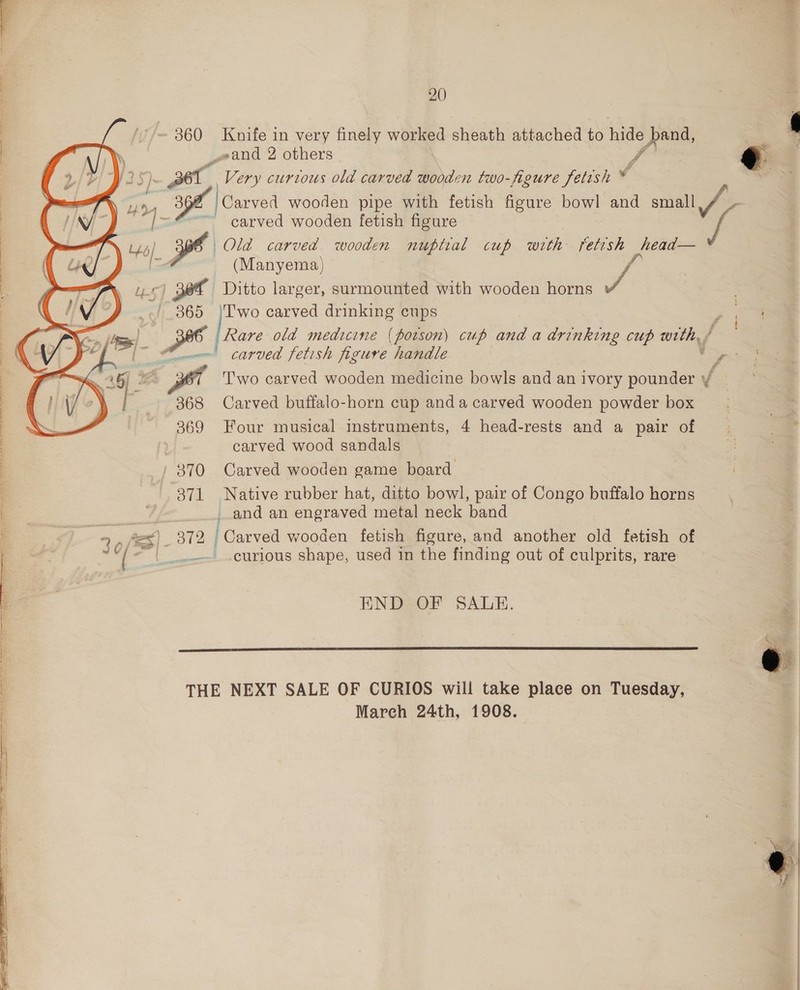 20
360 Knife in very finely worked sheath attached to hide band,
and 2 others
25/- 361 Very curious old carved wooden two-figure fetish
362 Carved wooden pipe with fetish figure bowl and small
carved wooden fetish figure
40/- 363 Old carved wooden nuptial cup with fetish head—
(Manyema)
364 Ditto larger, surmounted with wooden horns
365 Two carved drinking cups
366 Rare old medicine (poison) cup and a drinking cup with
carved fetish figure handle
367 Two carved wooden medicine bowls and an ivory pounder
368 Carved buffalo-horn cup and a carved wooden powder box
369 Four musical instruments, 4 head-rests and a pair of
carved wood sandals
370 Carved wooden game board
371 Native rubber hat, ditto bowl, pair of Congo buffalo horns
and an engraved metal neck band
30/- 372 Carved wooden fetish figure, and another old fetish of
curious shape, used in the finding out of culprits, rare
END OF SALE.
THE NEXT SALE OF CURIOS will take place on Tuesday,
March 24th, 1908.